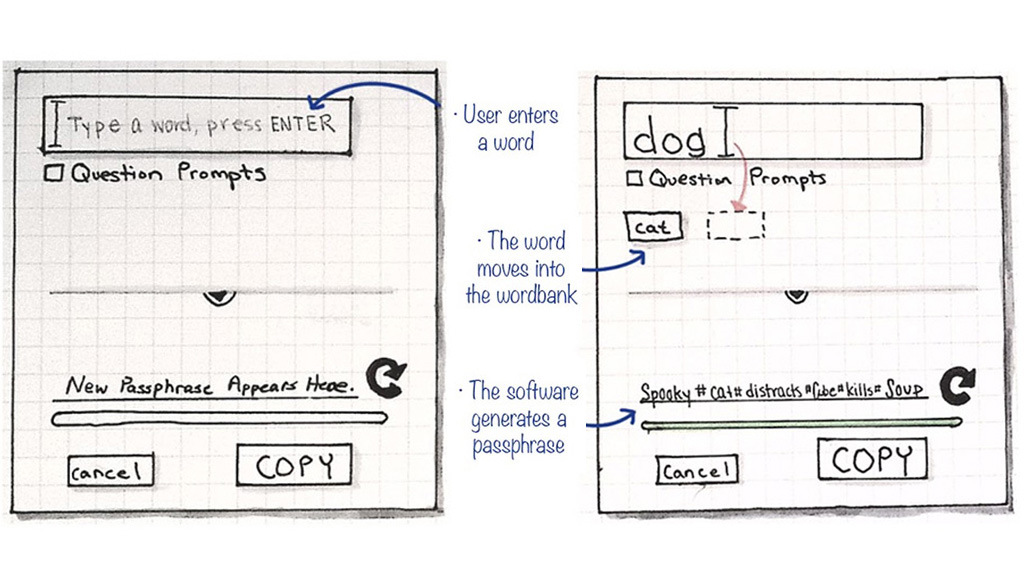 Type a word, press ENTER
Question Prompts
New Passphrase Appears Here.
Cancel
COPY
· User enters
a word
· The word
moves into
the wordbank
· The software
generates a
passphrase
dog
Question Prompts
cat
Spooky # cat # distracts # # kills # Soup
Cancel
COPY